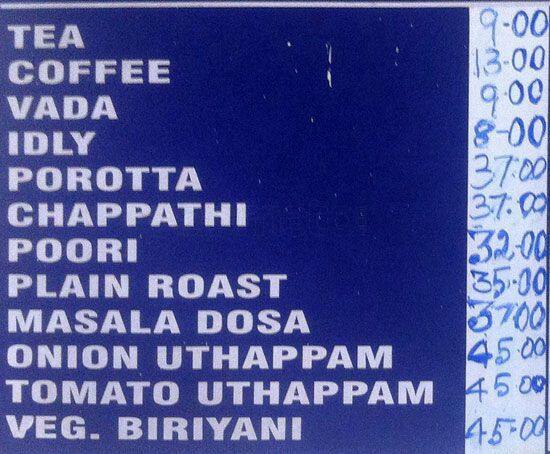 TEA 9-00
COFFEE 13-00
VADA 9-00
IDLY 8-00
POROTTA 37-00
CHAPPATHI 37-00
POORI 32-00
PLAIN ROAST 35-00
MASALA DOSA 37-00
ONION UTHAPPAM 45-00
TOMATO UTHAPPAM 45-00
VEG. BIRIYANI 45-00